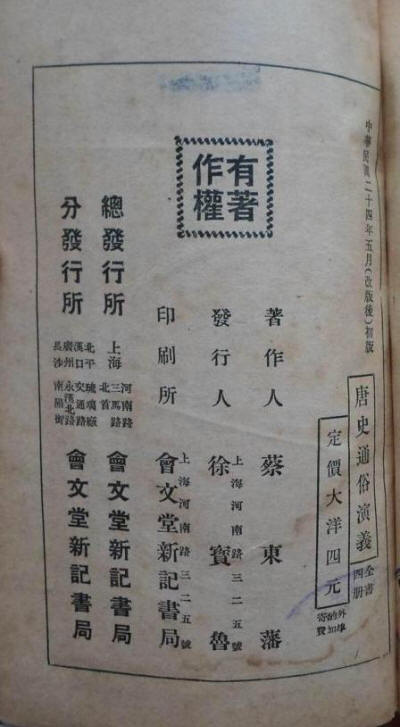 中華民國二十四年五月(改版後)初版
唐史通俗演義
全書四册
定價大洋四元
外埠的加寄費
有著作權
著作人 蔡東藩
發行人 徐寶魯
上海河南路三二五號
印刷所 會文堂新記書局
上海河南路三二五號
總發行所 上海 河南路三馬路北首 會文堂新記書局
分發行所 北平 琉璃廠 漢口 交通路 廣州 永漢北路 長沙 南陽街 會文堂新記書局